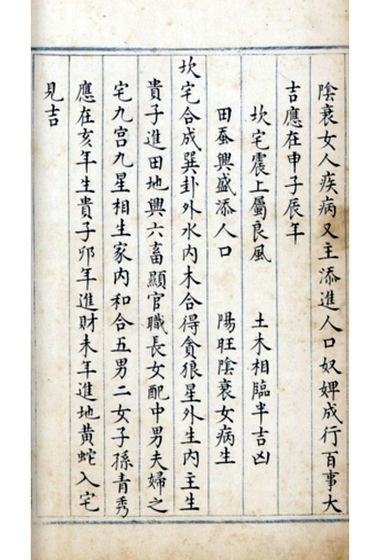 陰衰女人疾病又主添進人口奴婢成行百事大
吉應在申子辰年
坎宅震上屬良風　土木相臨半吉凶
田蚕興盛添人口　陽旺陰衰女病生
坎宅合成巽卦外水內木合得貪狼星外生內主生
貴子進田地興六畜顯官職長女配中男夫婦之
宅九宮九星相生家內和合五男二女子孫青秀
應在亥年生貴子卯年進財未年進地黃蛇入宅
見吉